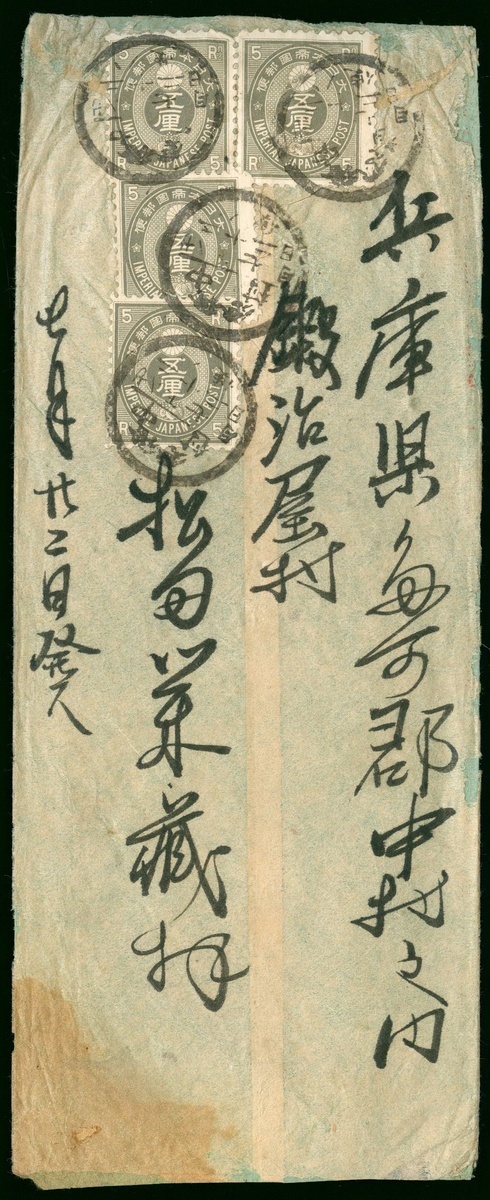 兵庫県多可郡中村之内
鍛冶屋村
松田栄蔵拝
七月廿二日発ス
大日本帝國郵便
五厘
IMPERIAL JAPANESE POST
5 Rn 5 R
大日本帝國郵便
五厘
IMPERIAL JAPANESE POST
5 R 5
大日本帝國郵便
五厘
IMPERIAL
5
大日本帝國郵便
五厘
IMPERIAL JAPANESE POST
5 R